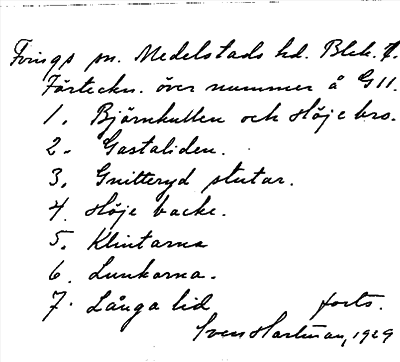 Tvings sn. Medelstads hd. Blek. 7.
Förteckn. över nummer å G 11.
1. Björnkullen och Höje bro.
2. Gastaliden.
3. Gnitteryd slutar.
4. Höje backe.
5. Klintarna
6. Lunkorna.
7. Långa lid forts.
Sven Hartman, 1929